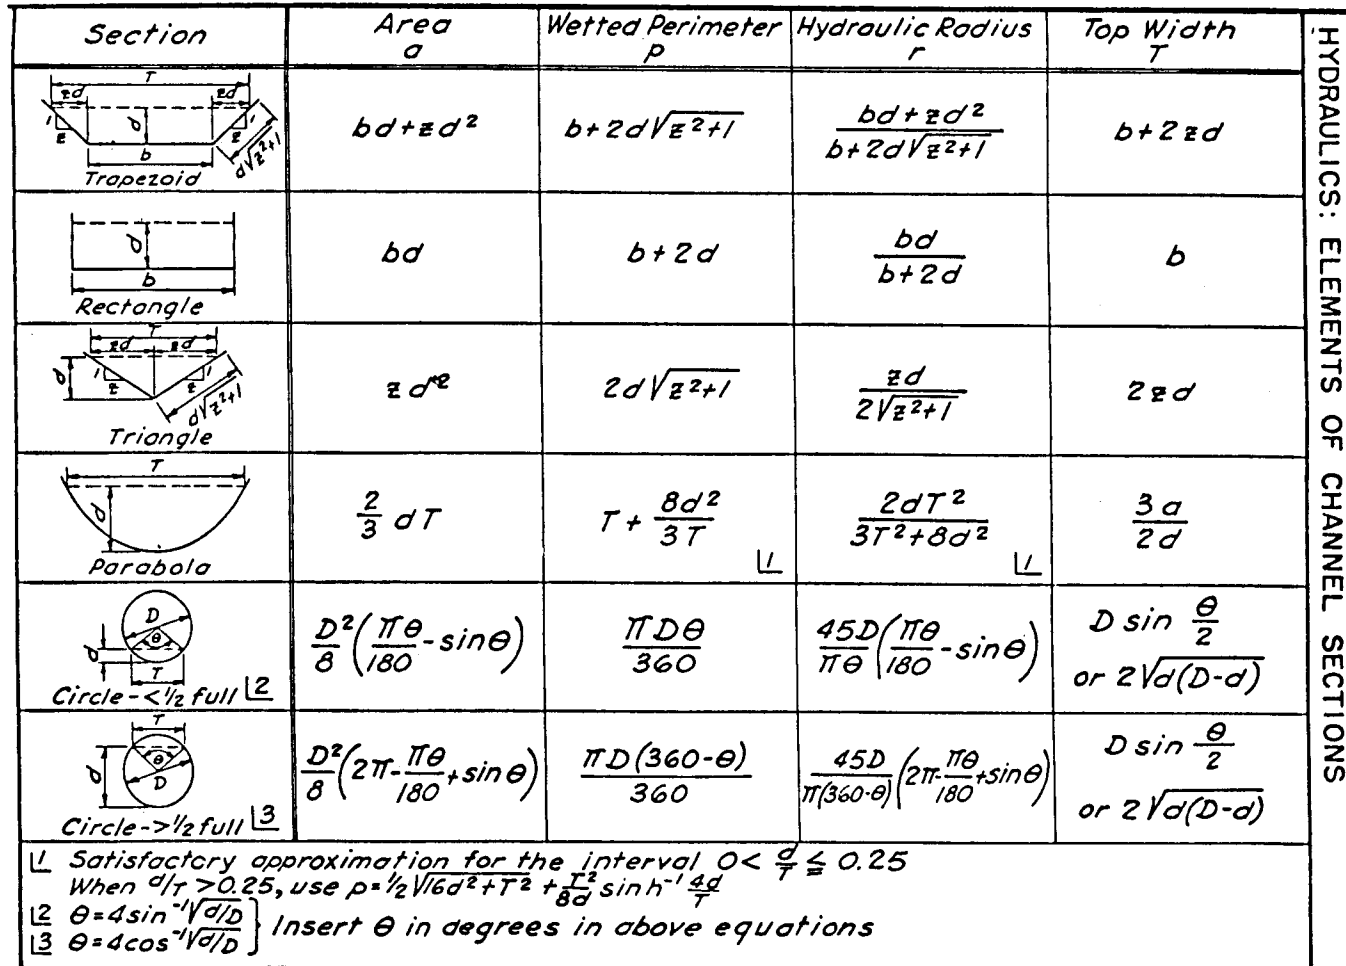 Section	Area a	Wetted Perimeter p	Hydraulic Radius r	Top Width T
T
zd zd
1 z d 1 z
b d√z²+1
Trapezoid	bd+zd²	b+2d√z²+1	bd+zd² / b+2d√z²+1	b+2zd
d
b
Rectangle	bd	b+2d	bd / b+2d	b
T
zd zd
d 1 z z 1
d√z²+1
Triangle	zd²	2d√z²+1	zd / 2√z²+1	2zd
T
d
Parabola	2/3 dT	T + 8d²/3T ⌊1	2dT² / 3T²+8d² ⌊1	3a/2d
D
θ
d
T
Circle-<1/2 full ⌊2	D²/8 (πθ/180 - sinθ)	πDθ/360	45D/πθ (πθ/180 - sinθ)	D sin θ/2 or 2√d(D-d)
T
θ
d
D
Circle->1/2 full ⌊3	D²/8 (2π - πθ/180 + sinθ)	πD(360-θ)/360	45D/π(360-θ) (2π - πθ/180 + sinθ)	D sin θ/2 or 2√d(D-d)
⌊1 Satisfactory approximation for the interval 0< d/T ≦ 0.25
When d/T >0.25, use p=1/2√16d²+T² + T²/8d sinh⁻¹ 4d/T
⌊2 θ=4sin⁻¹√d/D
⌊3 θ=4cos⁻¹√d/D } Insert θ in degrees in above equations
HYDRAULICS: ELEMENTS OF CHANNEL SECTIONS